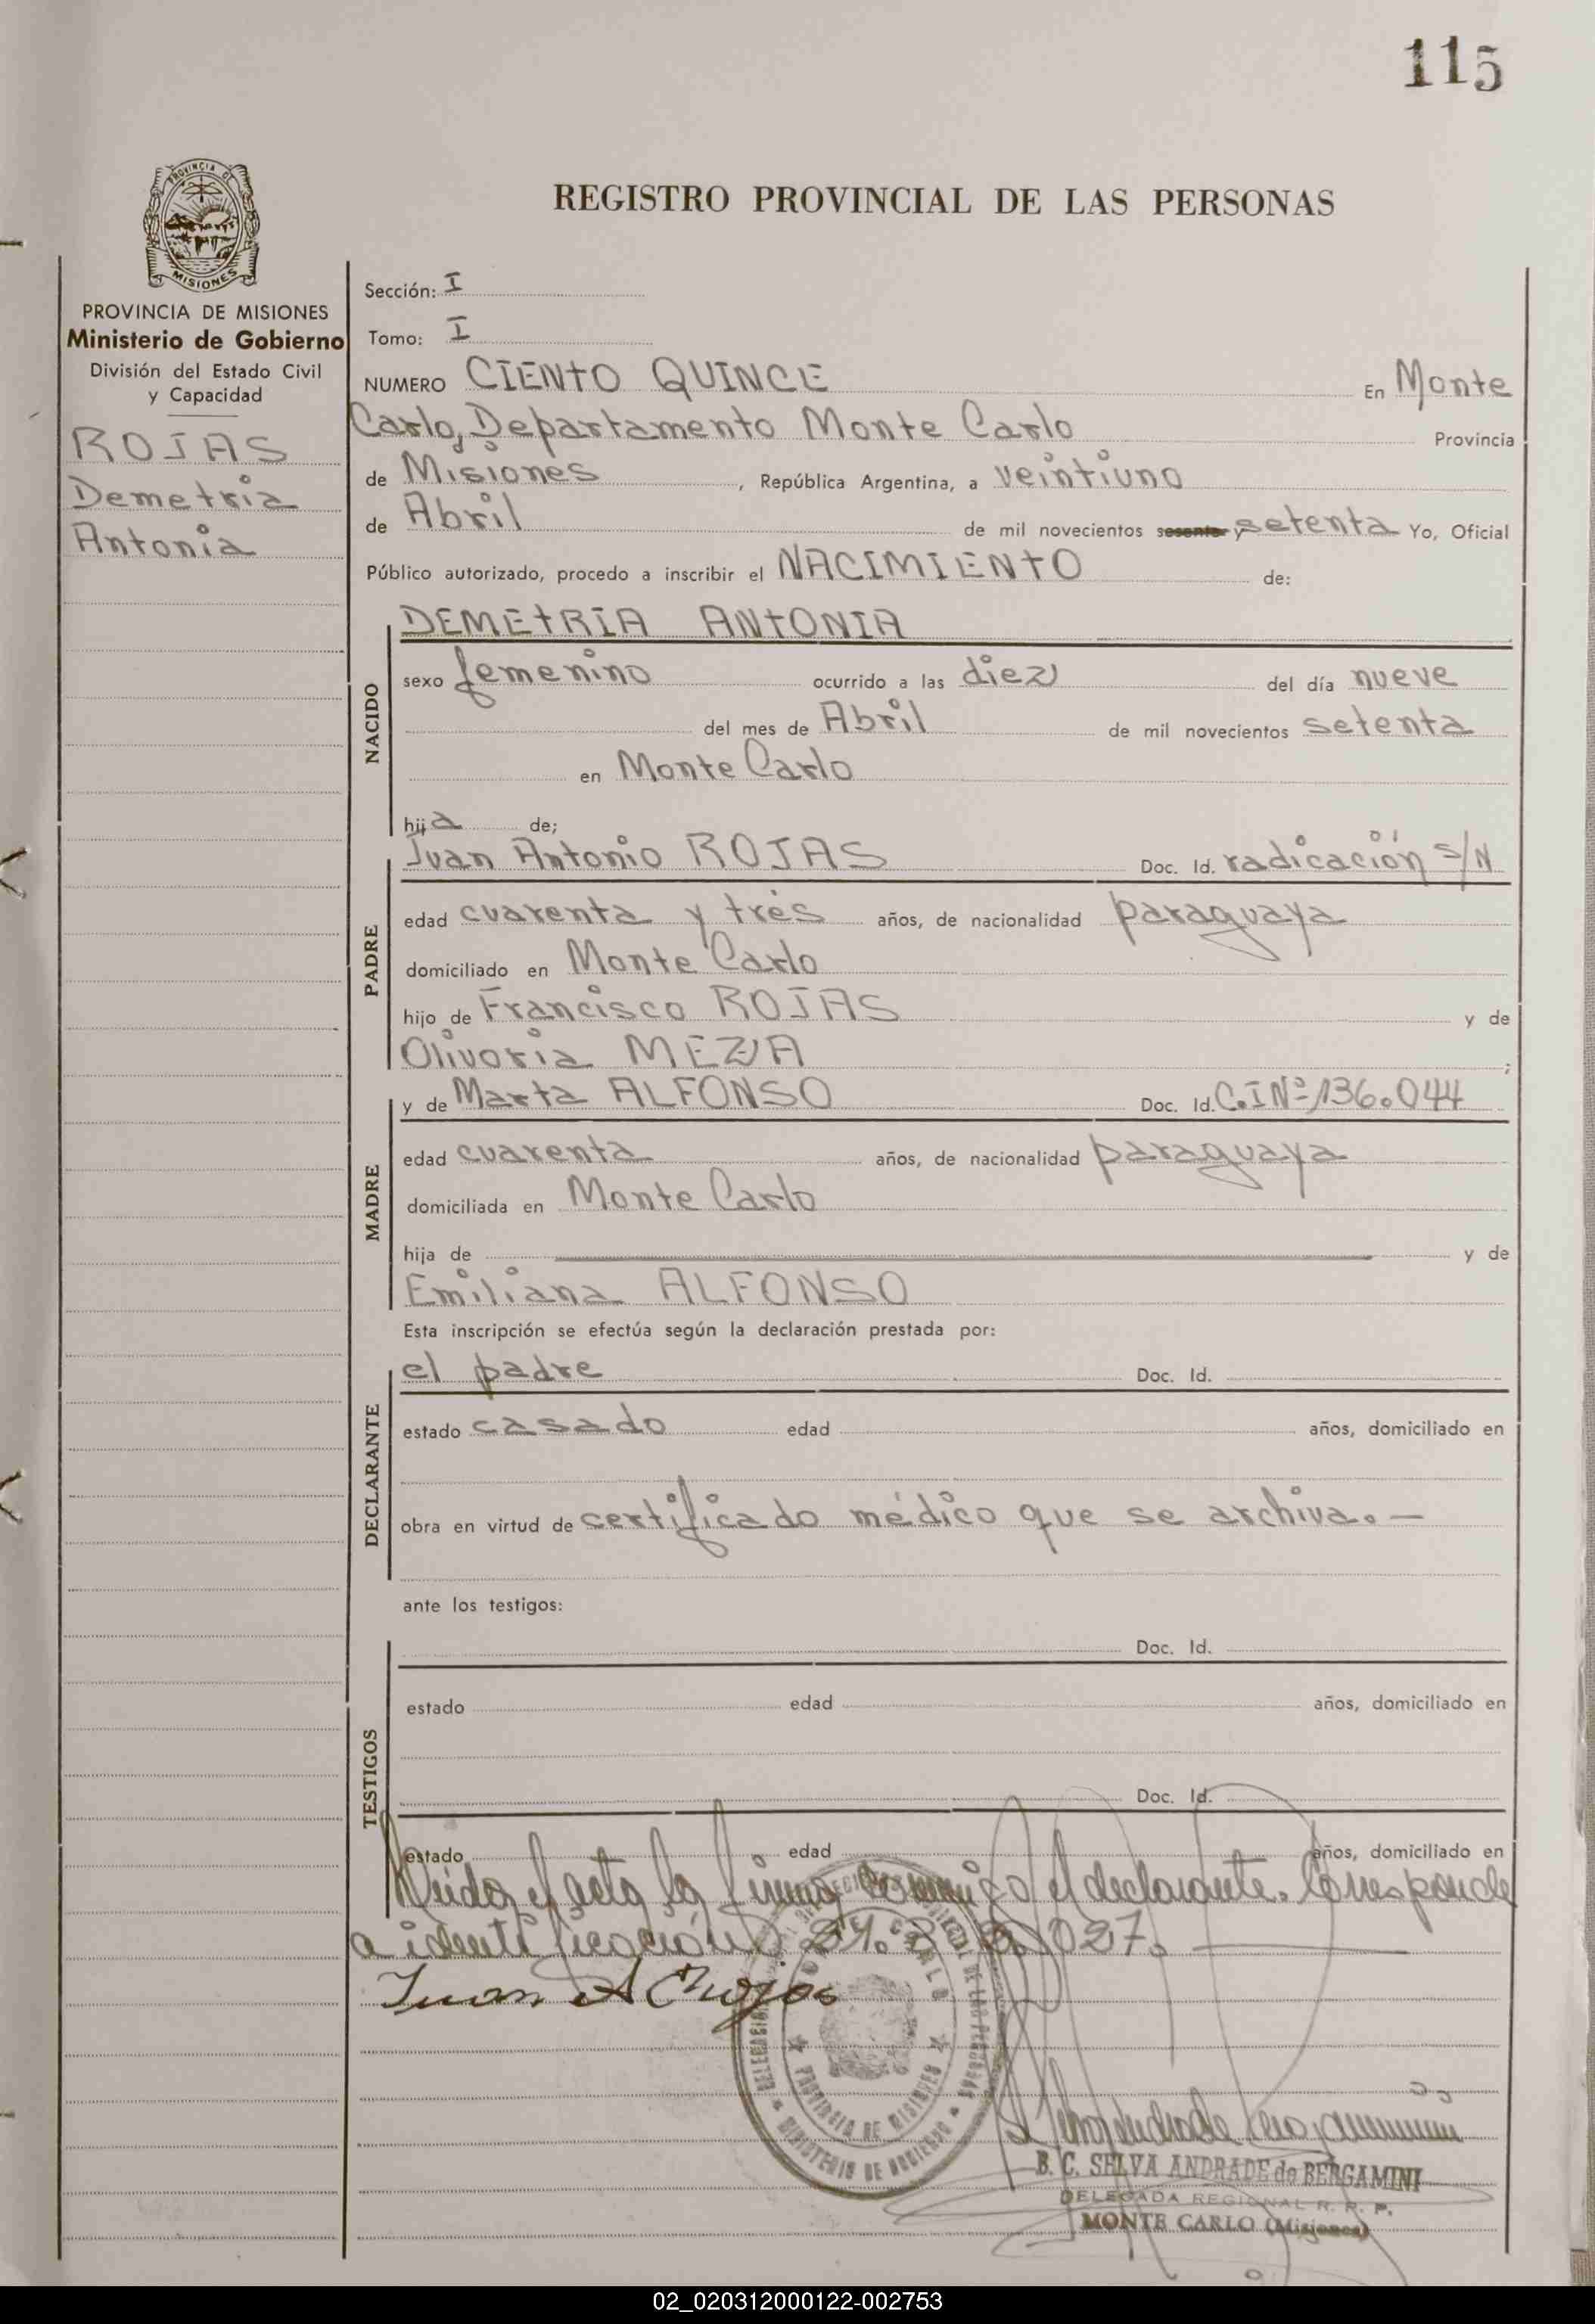 115
PROVINCIA DE
MISIONES
REGISTRO PROVINCIAL DE LAS PERSONAS
PROVINCIA DE MISIONES
Ministerio de Gobierno
División del Estado Civil
y Capacidad
ROJAS
Demetria
Antonia
Sección: I
Tomo: I
NUMERO CIENTO QUINCE En Monte
Carlo, Departamento Monte Carlo Provincia
de Misiones, República Argentina, a veintiuno
de Abril de mil novecientos sesenta y setenta Yo, Oficial
Público autorizado, procedo a inscribir el NACIMIENTO de:
NACIDO
DEMETRIA ANTONIA
sexo femenino ocurrido a las diez del día nueve
del mes de Abril de mil novecientos setenta
en Monte Carlo
hija de;
PADRE
Juan Antonio ROJAS Doc. Id. radicación S/N
edad cuarenta y tres años, de nacionalidad paraguaya
domiciliado en Monte Carlo
hijo de Francisco ROJAS y de
Olivoria MEZA ;
MADRE
y de Marta ALFONSO Doc. Id. C.I Nº 136.044
edad cuarenta años, de nacionalidad paraguaya
domiciliada en Monte Carlo
hija de y de
Emiliana ALFONSO
Esta inscripción se efectúa según la declaración prestada por:
DECLARANTE
el padre Doc. Id.
estado casado edad años, domiciliado en
obra en virtud de certificado médico que se archiva. —
ante los testigos:
TESTIGOS
Doc. Id.
estado edad años, domiciliado en
Doc. Id.
estado edad años, domiciliado en
Leida el acta la firma conmigo el declarante. Corresponde
a identificación 027.
Juan A Rojas
PROVINCIA DE MISIONES
MINISTERIO DE GOBIERNO
B. C. SELVA ANDRADE de BERGAMINI
DELEGADA REGIONAL R. P. P.
MONTE CARLO (Misiones)
02_020312000122-002753